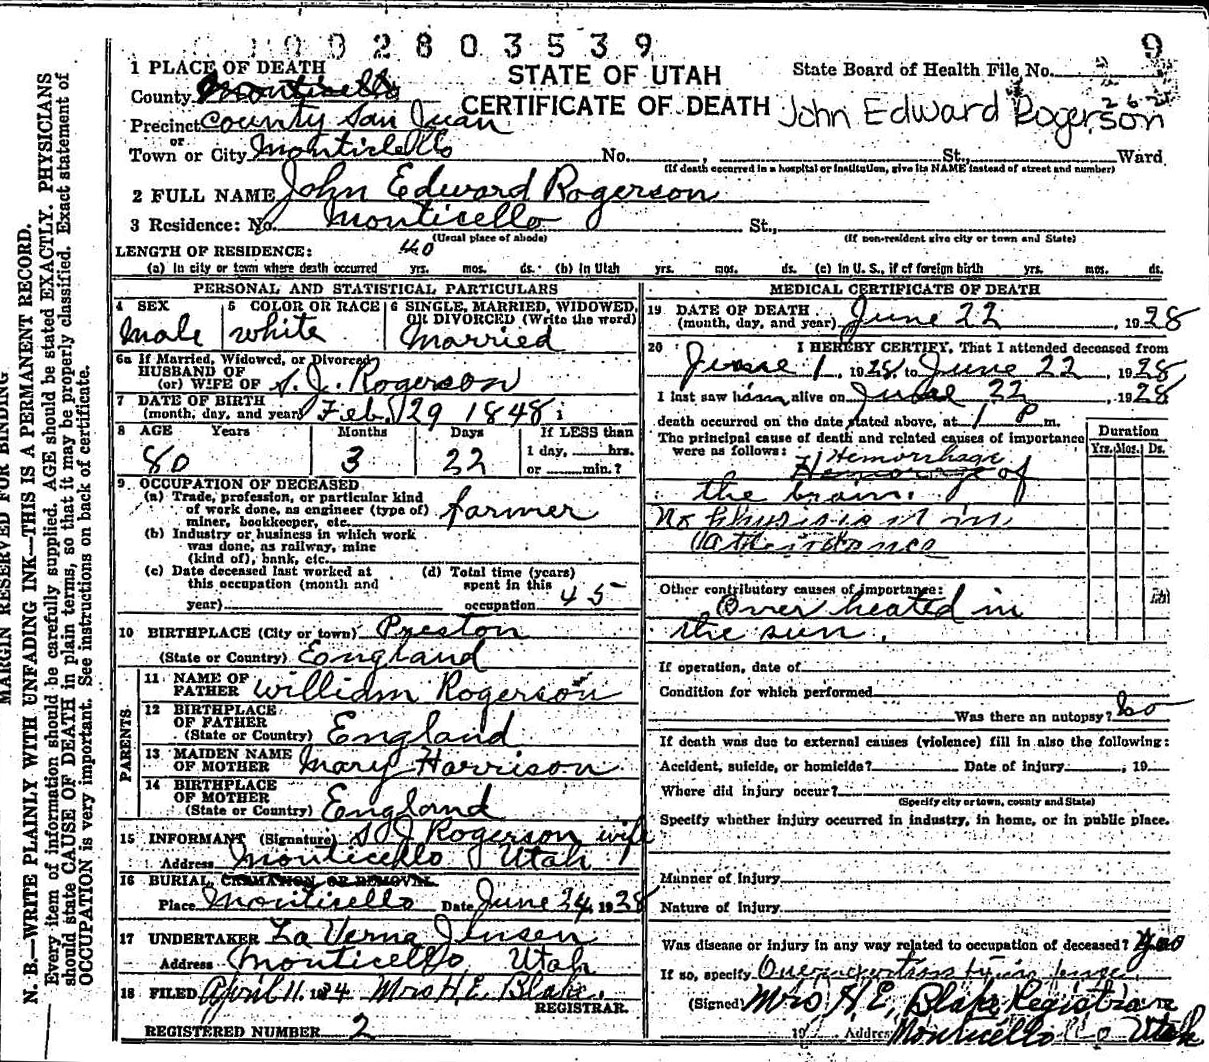 1 0 0 2 8 0 3 5 3 9 9
1 PLACE OF DEATH
STATE OF UTAH
CERTIFICATE OF DEATH
State Board of Health File No.
John Edward Rogerson
County Monticello
Precinct County San Juan
or
Town or City Monticello No. , St., Ward
(If death occurred in a hospital or institution, give its NAME instead of street and number)
2 FULL NAME John Edward Rogerson
3 Residence: No. Monticello St.,
(Usual place of abode) (If non-resident give city or town and State)
LENGTH OF RESIDENCE: 40
(a) In city or town where death occurred yrs. mos. ds. (b) In Utah yrs. mos. ds. (c) In U. S., if of foreign birth yrs. mos. ds.
PERSONAL AND STATISTICAL PARTICULARS
4 SEX 5 COLOR OR RACE 6 SINGLE, MARRIED, WIDOWED,
OR DIVORCED (Write the word)
Male white Married
6a If Married, Widowed, or Divorced
HUSBAND OF
(or) WIFE OF S. J. Rogerson
7 DATE OF BIRTH
(month, day, and year) Feb. 29 1848
8 AGE Years Months Days If LESS than
1 day, hrs.
80 3 22 or min.?
9 OCCUPATION OF DECEASED
(a) Trade, profession, or particular kind
of work done, as engineer (type of)
miner, bookkeeper, etc. farmer
(b) Industry or business in which work
was done, as railway, mine
(kind of), bank, etc.
(c) Date deceased last worked at
this occupation (month and
year)
(d) Total time (years)
spent in this
occupation 45
10 BIRTHPLACE (City or town) Preston
(State or Country) England
PARENTS
11 NAME OF
FATHER William Rogerson
12 BIRTHPLACE
OF FATHER
(State or Country) England
13 MAIDEN NAME
OF MOTHER Mary Harrison
14 BIRTHPLACE
OF MOTHER
(State or Country) England
15 INFORMANT (Signature) S J Rogerson wife
Address Monticello Utah
16 BURIAL, CREMATION OR REMOVAL
Place Monticello Date June 24, 1928
17 UNDERTAKER La Verna Jensen
Address Monticello, Utah
18 FILED April 11. 1934 Mrs H.E. Blake.
REGISTRAR.
REGISTERED NUMBER 2
MEDICAL CERTIFICATE OF DEATH
19 DATE OF DEATH
(month, day, and year) June 22, 1928
20 I HEREBY CERTIFY, That I attended deceased from
June 1, 1928, to June 22, 1928
I last saw him alive on June 22, 1928
death occurred on the date stated above, at 1 P m.
The principal cause of death and related causes of importance
were as follows: Hemorrhage
Hemorage of
the brain.
No Physisian in
Attendance
Duration
Yrs. Mos. Ds.
Other contributory causes of importance:
Over heated in
the sun.
If operation, date of
Condition for which performed
Was there an autopsy? no
If death was due to external causes (violence) fill in also the following:
Accident, suicide, or homicide? Date of injury , 19
Where did injury occur?
(Specify city or town, county and State)
Specify whether injury occurred in industry, in home, or in public place.
Manner of Injury
Nature of Injury
Was disease or injury in any way related to occupation of deceased? Yes
If so, specify Overexertion
(Signed) Mrs, H E, Blake, Registrar
19 Address Monticello Utah
MARGIN RESERVED FOR BINDING
N. B.—WRITE PLAINLY WITH UNFADING INK—THIS IS A PERMANENT RECORD.
Every item of information should be carefully supplied. AGE should be stated EXACTLY. PHYSICIANS
should state CAUSE OF DEATH in plain terms, so that it may be properly classified. Exact statement of
OCCUPATION is very important. See instructions on back of certificate.